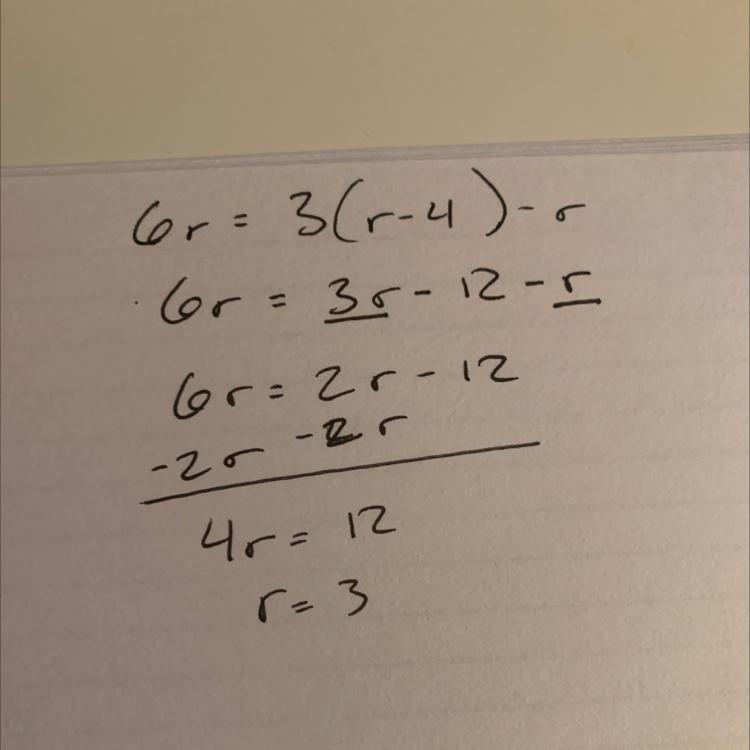 6r = 3(r-4)-r
6r = 3r - 12 - r
6r = 2r - 12
-2r -2r
4r = 12
r = 3